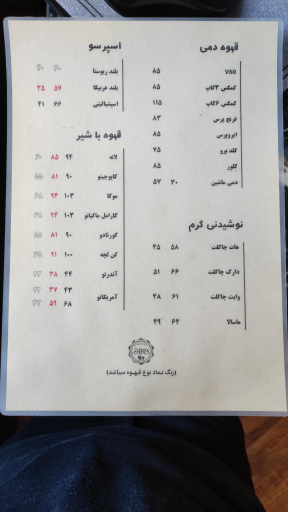 قهوه دمی
V60 ۸۵
کمکس ۳کاپ ۸۵
کمکس ۶کاپ ۱۱۵
فرنچ پرس ۸۳
ایروپرس ۸۵
کلد برو ۷۵
کلور ۸۵
دمی ماشین ۳۰ ۵۷
نوشیدنی گرم
هات چاکلت ۵۸ ۴۵
دارک چاکلت ۶۶ ۵۱
وایت چاکلت ۶۱ ۴۸
ماسالا ۶۴ ۴۹
اسپرسو
بلند ربوستا
بلند عربیکا ۵۷ ۳۵
اسپشیالیتی ۶۶ ۴۱
قهوه با شیر
لاته ۹۴ ۸۵
کاپوچینو ۹۰ ۸۱
موکا ۱۰۳ ۹۴
کارامل ماکیاتو ۱۰۳ ۹۴
کورتادو ۹۰ ۸۱
کن لچه ۱۰۰ ۹۱
آندرتو ۴۴ ۳۸
آمریکانو ۴۳ ۳۷
۶۸ ۵۹
(رنگ نماد نوع قهوه میباشد)